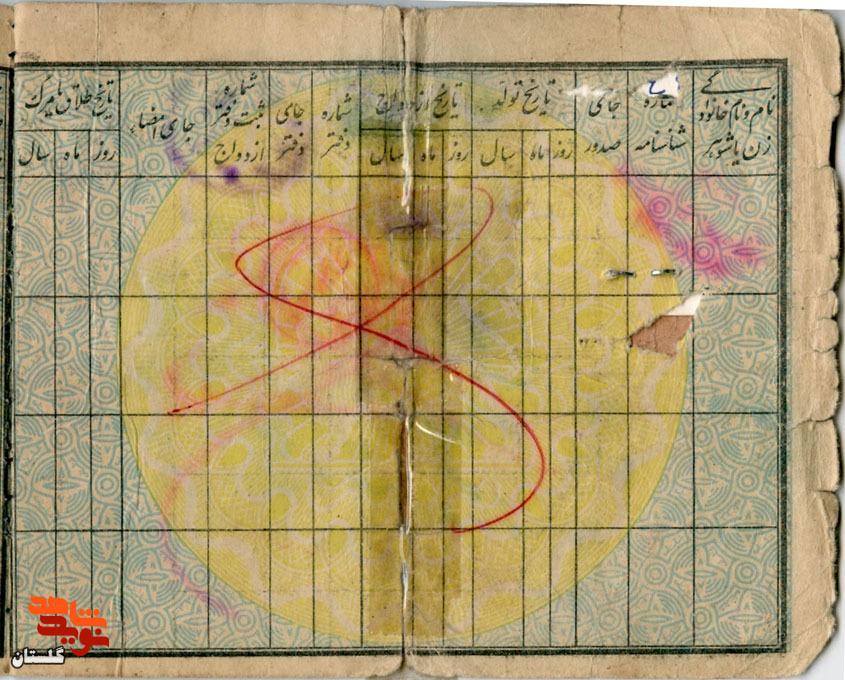 نام و نام خانوادگی
زن یا شوهر
شماره
شناسنامه
جای
صدور
تاریخ تولد
روز ماه سال
تاریخ ازدواج
روز ماه سال
شماره
دفتر
جای
دفتر
شماره
ثبت دفتر
ازدواج
جای امضاء
تاریخ طلاق یا مرگ
روز ماه سال
نوید شاهد
گلستان